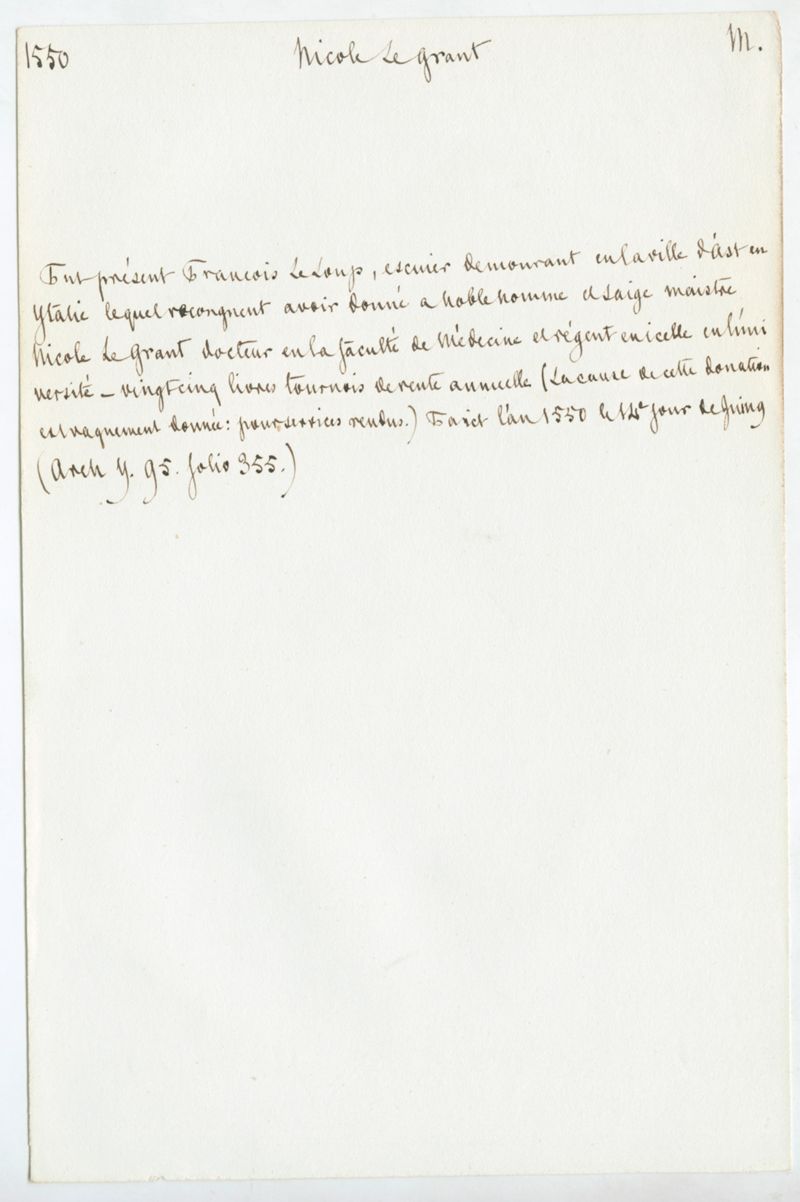 1550 Nicole Le Grant M.
Fut présent Francois Le Loup, escuier demourant en la ville d'Ast en
Ytalie lequel recongneut avoir donné a noble homme et saige maistre
Nicole Le Grant docteur en la faculté de Médecine et régent en icelle en l'uni
versité – vingt cinq livres tournois de rente annuelle (La cause de cette donation
est vaguement donnée: pour services rendus.) Faict l'an 1550 le 14e jour de Juing
(Arch Y. 95. folio 355.)